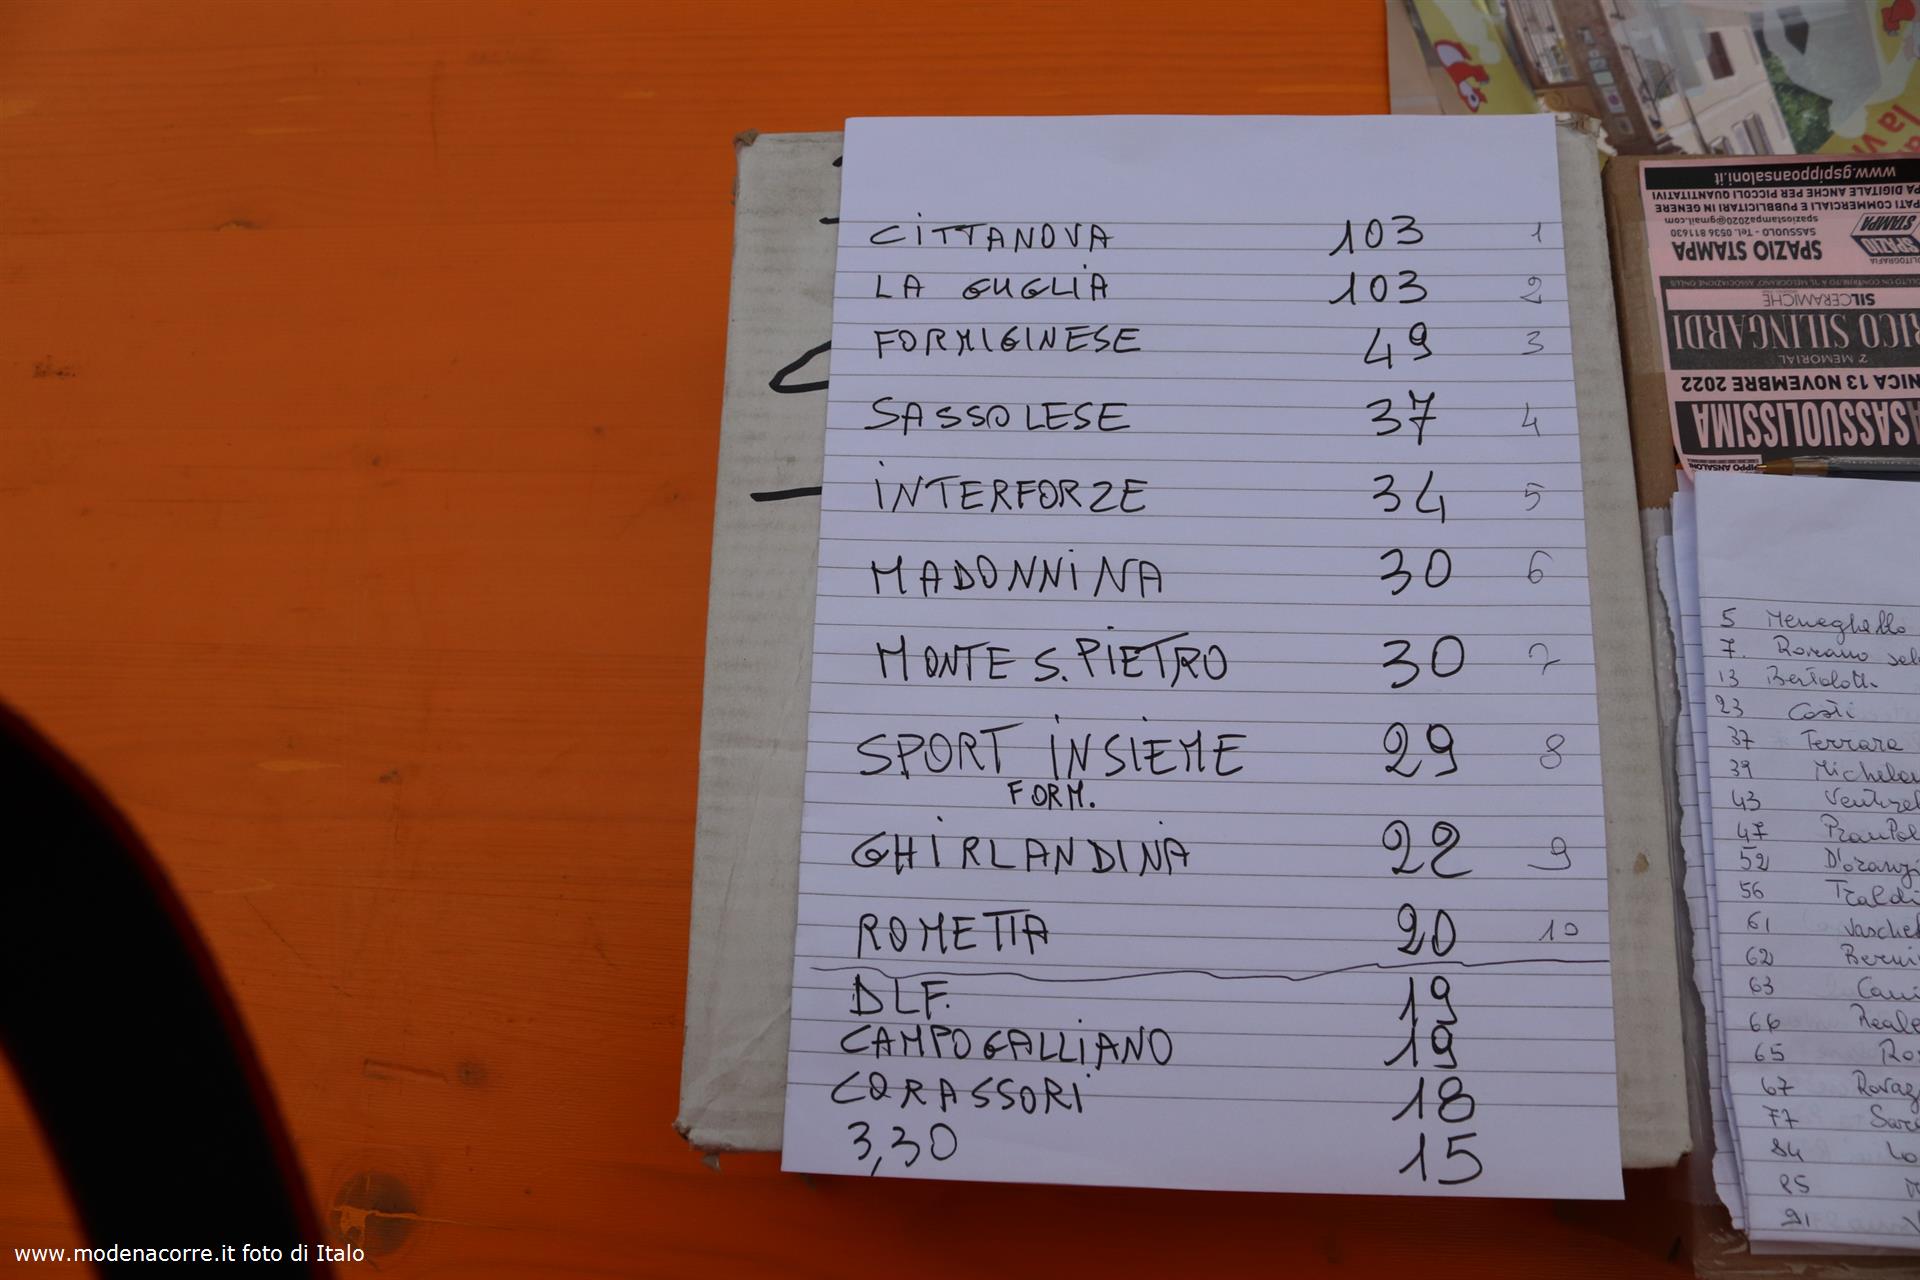 CITTANOVA 103 1
LA GUGLIA 103 2
FORMIGINESE 49 3
SASSOLESE 37 4
INTERFORZE 34 5
MADONNINA 30 6
MONTE S. PIETRO 30 7
SPORT INSIEME 29 8
FORM.
GHIRLANDINA 22 9
ROMETTA 20 10
DLF. 19
CAMPOGALLIANO 19
CORASSORI 18
3,30 15
ASSUOLISSIMA
NICA 13 NOVEMBRE 2022
2° MEMORIAL
RICO SILINGARDI
SILCERAMICHE
SPAZIO STAMPA
SASSUOLO - TEL. 0536 811630
spaziostampa2020@gmail.com
PATI COMMERCIALI E PUBBLICITARI IN GENERE
PA DIGITALE ANCHE PER PICCOLI QUANTITATIVI
www.gspippoansaloni.it
SPAZIO
STAMPA
5 Meneghello
7. Romano
13 Bertolotti
23 Costi
37 Ferrara
39
43
47
52
56 Traldi
61
62
63
66
65
67
77
84
85
91
www.modenacorre.it foto di Italo